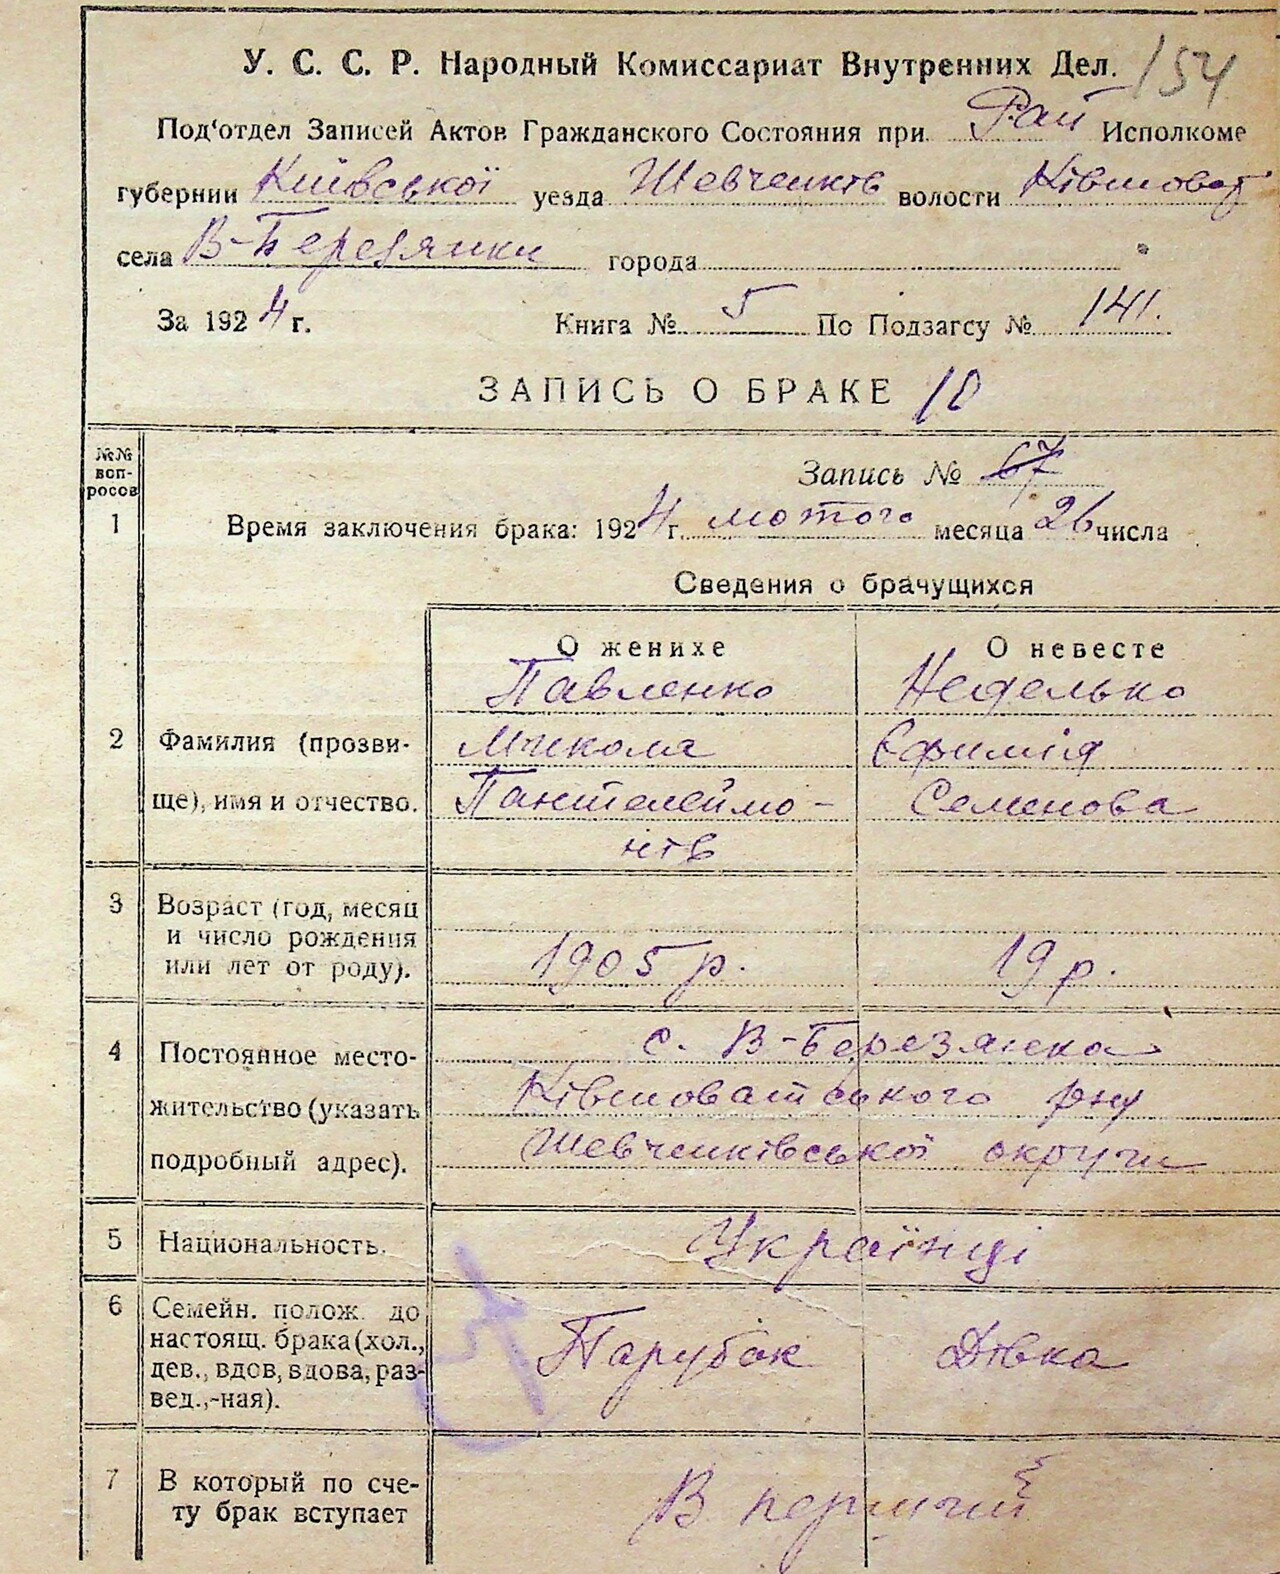 154
У. С. С. Р. Народный Комиссариат Внутренних Дел.
Под'отдел Записей Актов Гражданского Состояния при Рай Исполкоме
губернии Київської уезда Шевченків волости Ківшоват
села В-Березянки города
За 1924 г. Книга № 5 По Подзагсу № 141.
ЗАПИСЬ О БРАКЕ 10
№№ воп-росов
Запись № 67
1 Время заключения брака: 1924 г. лютого месяца 26 числа
Сведения о брачущихся
О женихе О невесте
Павленко Неделько
2 Фамилия (прозви- Микола Єфимія
ще), имя и отчество. Пантелеймо- Семенова
нів
3 Возраст (год, месяц
и число рождения
или лет от роду). 1905 р. 19 р.
4 Постоянное место- с. В-Березянка
жительство (указать Ківшоватського рну
подробный адрес). Шевченківської округи
5 Национальность. Українці
6 Семейн. полож. до
настоящ. брака (хол., Парубок Дівка
дев., вдов, вдова, раз-
вед.,-ная).
7 В который по сче- В перший
ту брак вступает